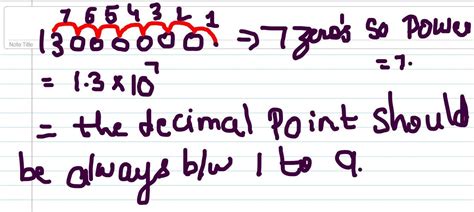 7 6 5 4 3 2 1
Note Title
13000000 ⇒ 7 zero's so Power
= 7.
= 1.3 × 10⁷
= the decimal Point should
be always b/w 1 to 9.